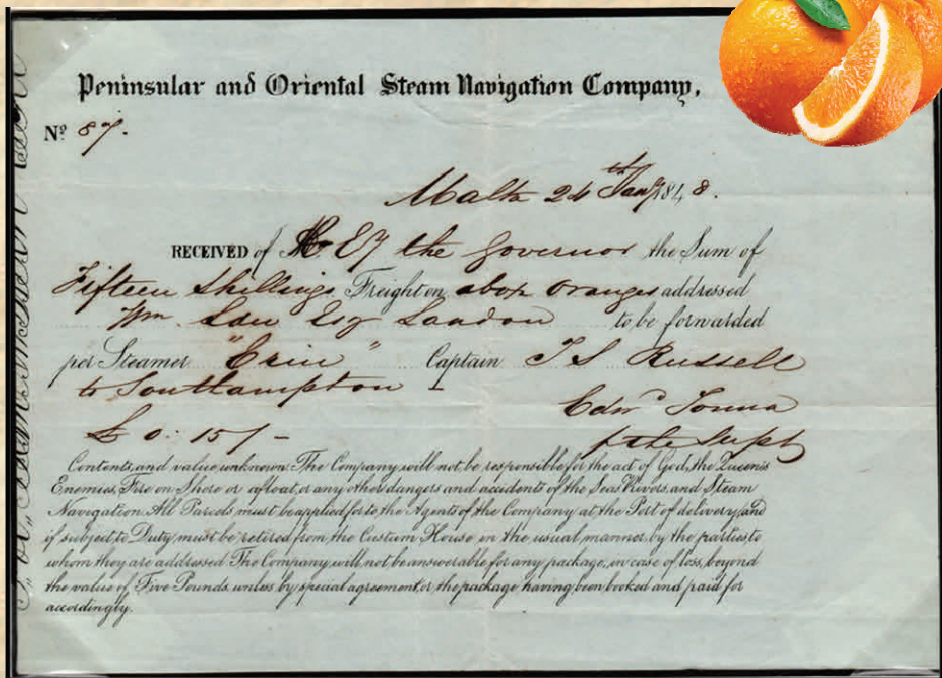 Peninsular and Oriental Steam Navigation Company,
Nº 87-
Malta 24th Jany 1848.
RECEIVED of H. Ey the Governor the Sum of
Fifteen Shillings Freight on abox Oranges addressed
Wm. Esq London to be forwarded
per Steamer "Erin" Captain T S Russell
to Southampton
Edwd Tonna
£ 0: 15/- p the Supt
Contents, and value unknown. The Company will not be responsible for the act of God, the Queen's
Enemies, Fire on Shore or afloat, or any other dangers and accidents of the Seas Rivers, and Steam
Navigation. All Parcels must be applied for to the Agents of the Company at the Port of delivery, and
if subject to Duty, must be retired from the Custom House in the usual manner, by the parties to
whom they are addressed. The Company will not be answerable for any package, in case of loss, beyond
the value of Five Pounds unless by special agreement, or the package having been booked and paid for
accordingly.